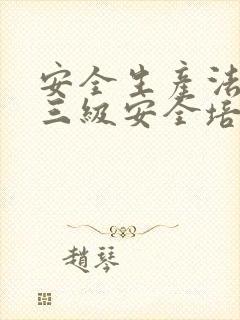 安全生產法
三級安全培
趙琴